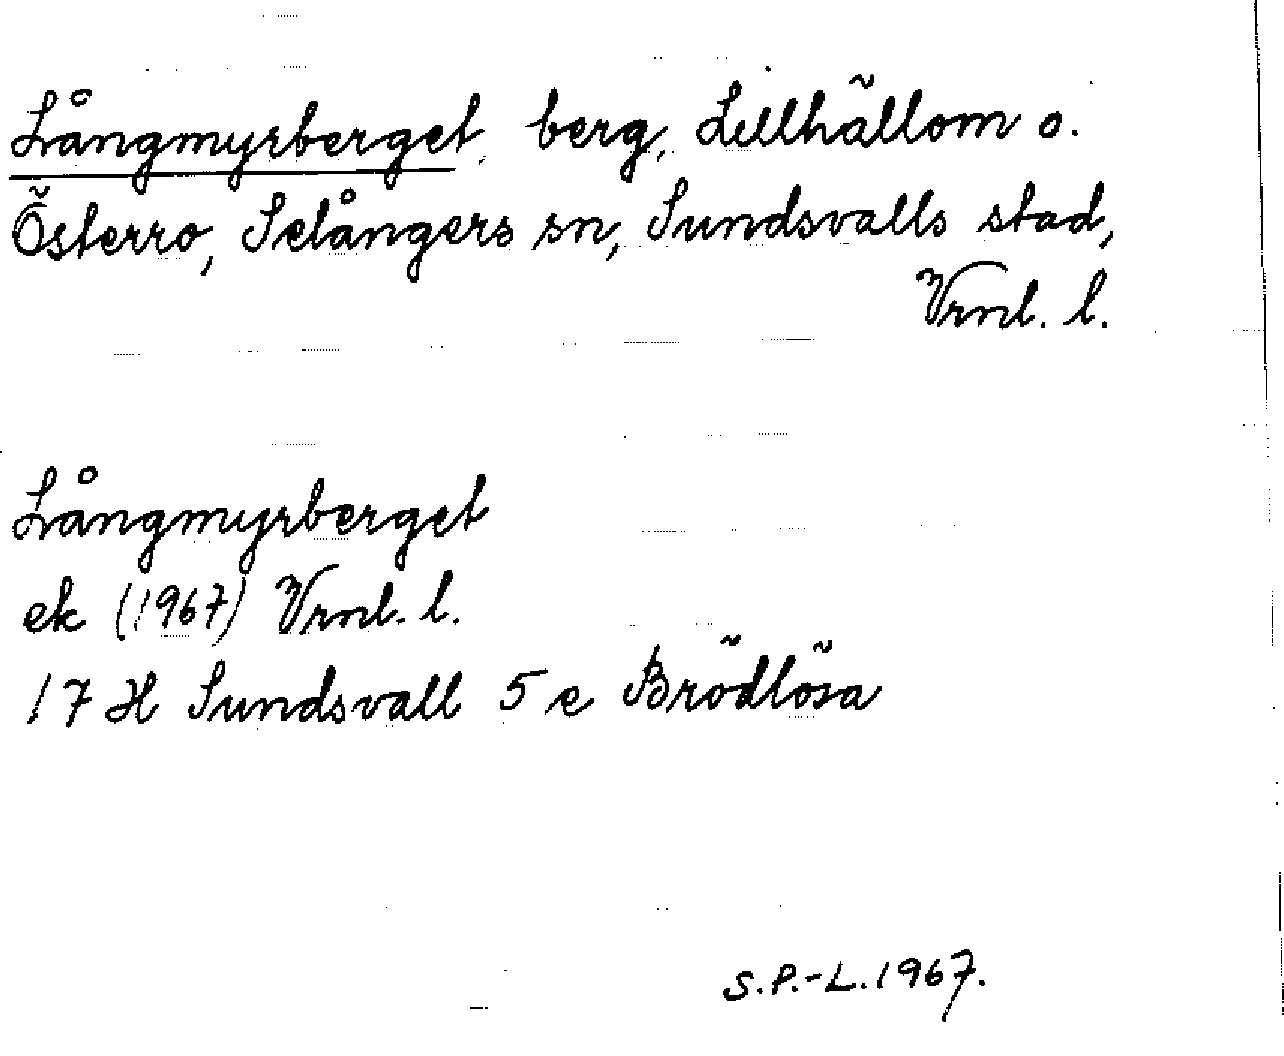 Långmyrberget, berg, Lillhällom o.
Österro, Selångers sn, Sundsvalls stad,
Vrnl. l.
Långmyrberget
ek (1967) Vrnl. l.
17 H Sundsvall 5 e Brödlösa
S.P.-L. 1967.